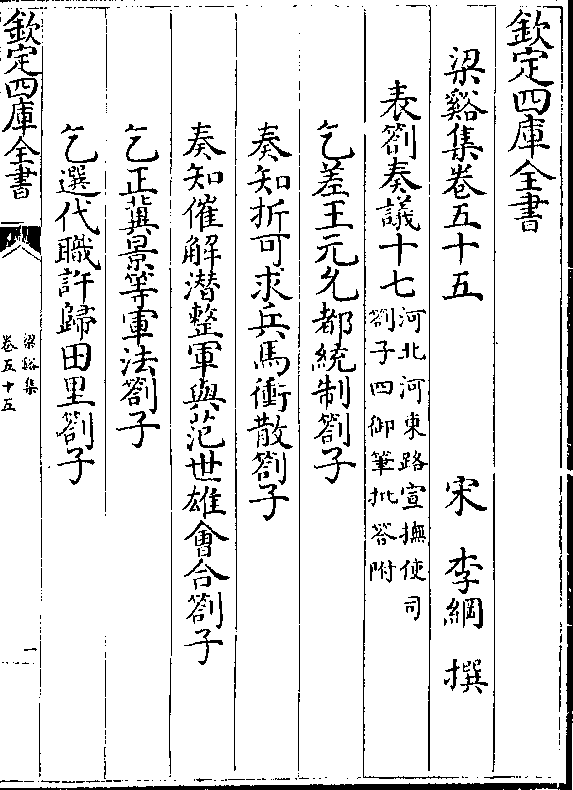 欽定四庫全書
梁谿集卷五十五
宋 李綱 撰
表劄奏議十七
河北河東路宣撫使司
劄子四御筆批答附
乞差王元充都統制劄子
奏知折可求兵馬衝散劄子
奏知催解潛整軍與范世雄會合劄子
乞正冀景等軍法劄子
乞選代職許歸田里劄子
欽定四庫全書
梁谿集
卷五十五
一